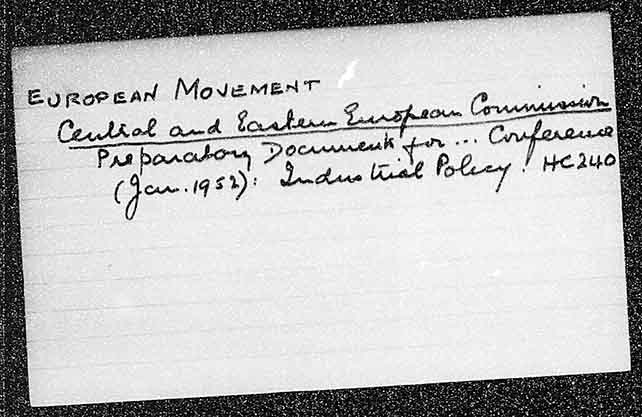 EUROPEAN MOVEMENT
Central and Eastern European Commission
Preparatory Documents for ... Conference
(Jan. 1952): Industrial Policy. HC240